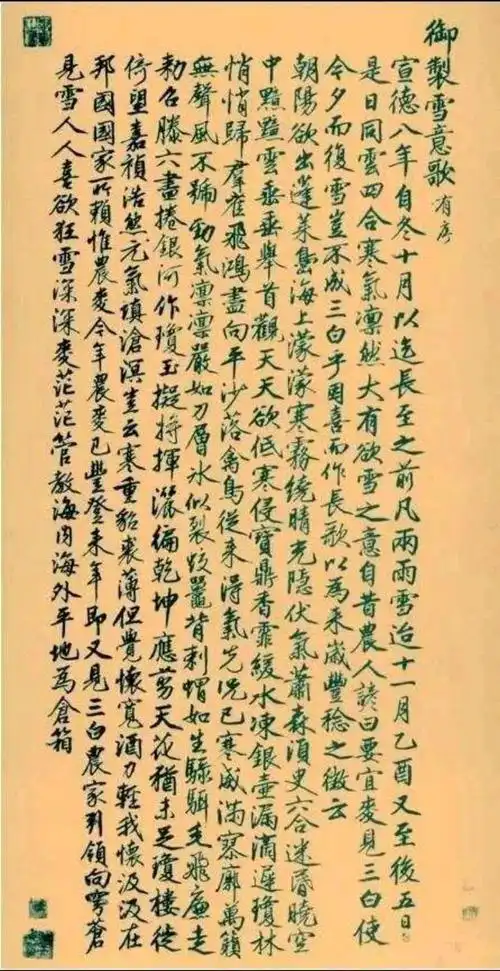 御製雪意歌有序
宣德八年自冬十月以迄長至之前凡兩雨雪迨十一月乙酉又至後五日
是日同雲四合寒氣凛然大有欲雪之意自昔農人諺曰要宜麥見三白使
今夕而復雪豈不成三白乎因喜而作長歌以為来歲豐稔之徵云
朝陽欲出蓬萊島海上濛濛寒霧繞晴光隱伏氣蕭森湏臾六合迷昏曉空
中黯黯雲垂垂舉首觀天天欲低寒侵寶鼎香霏緩水凍銀壷漏滴遲瓊林
悄悄歸羣雀飛鴻盡向平沙落禽鳥從来得氣先况已寒威滿寥廓萬籟
無聲風不號勁氣凛凛嚴如刀層冰似裂蛟鼉背刺蝟如生騄駬毛飛廉走
勅召滕六盡捲銀河作瓊玉擬將揮灑徧乾坤應剪天花猶未足瓊樓徙
倚望嘉禎浩然元氣填滄溟豈云寒重貂裘薄但覺懷寬酒力輕我懷汲汲在
邦國國家所賴惟農麥今年農麥已豐登来年即又見三白農家引領向穹蒼
見雪人人喜欲狂雪深深麥茫茫管教海内海外平地為倉箱